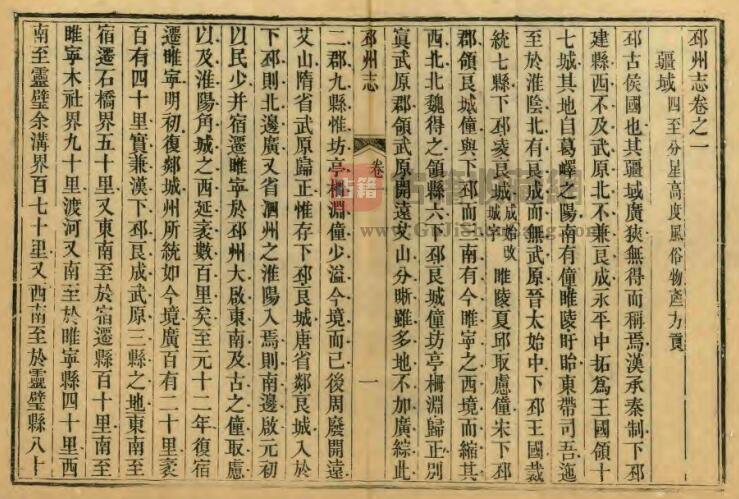 邳州志卷之一
疆域 四至分星高度風俗物產力貢
邳古侯國也其疆域廣狹無得而稱焉漢承秦制下邳
建縣西不及武原北不兼艮成永平中拓為王國領十
七城其地自葛嶧之陽南有僮睢陵盱眙東帶司吾迤
至於淮陰北有艮成而無武原晉太始中下邳王國裁
統七縣下邳夌艮城 成始改城字 睢陵夏邱取慮僮宋下邳
郡領艮城僮與下邳而三南有今睢寧之西境而縮其
西北北魏得之領縣六下邳艮城僮坊亭柵淵歸正別
寘武原郡領武原開遠艾山分晣雖多地不加廣綜此
邳州志
卷一
一
二郡九縣惟坊亭柵淵僮少溢今境而已後周廢開遠
艾山隋省武原歸正惟存下邳艮城唐省鄰艮城入於
下邳則北邊廣又省泗州之淮陽入焉則南邊啟元初
以民少并宿遷睢寧於邳州大啟東南及古之僮取慮
以及淮陽角城之西延袤數百里矣至元十二年復宿
遷睢寧明初復鄰城州所統如今境廣百有二十里袤
百有四十里實兼漢下邳艮成武原三縣之地東南至
宿遷石橋界五十里又東南至於宿遷縣百十里南至
睢寧木社界九十里渡河又南至於睢寧縣四十里西
南至靈璧余溝界百七十里又西南至於靈璧縣八十
古籍
www.GuJiShuCang.com